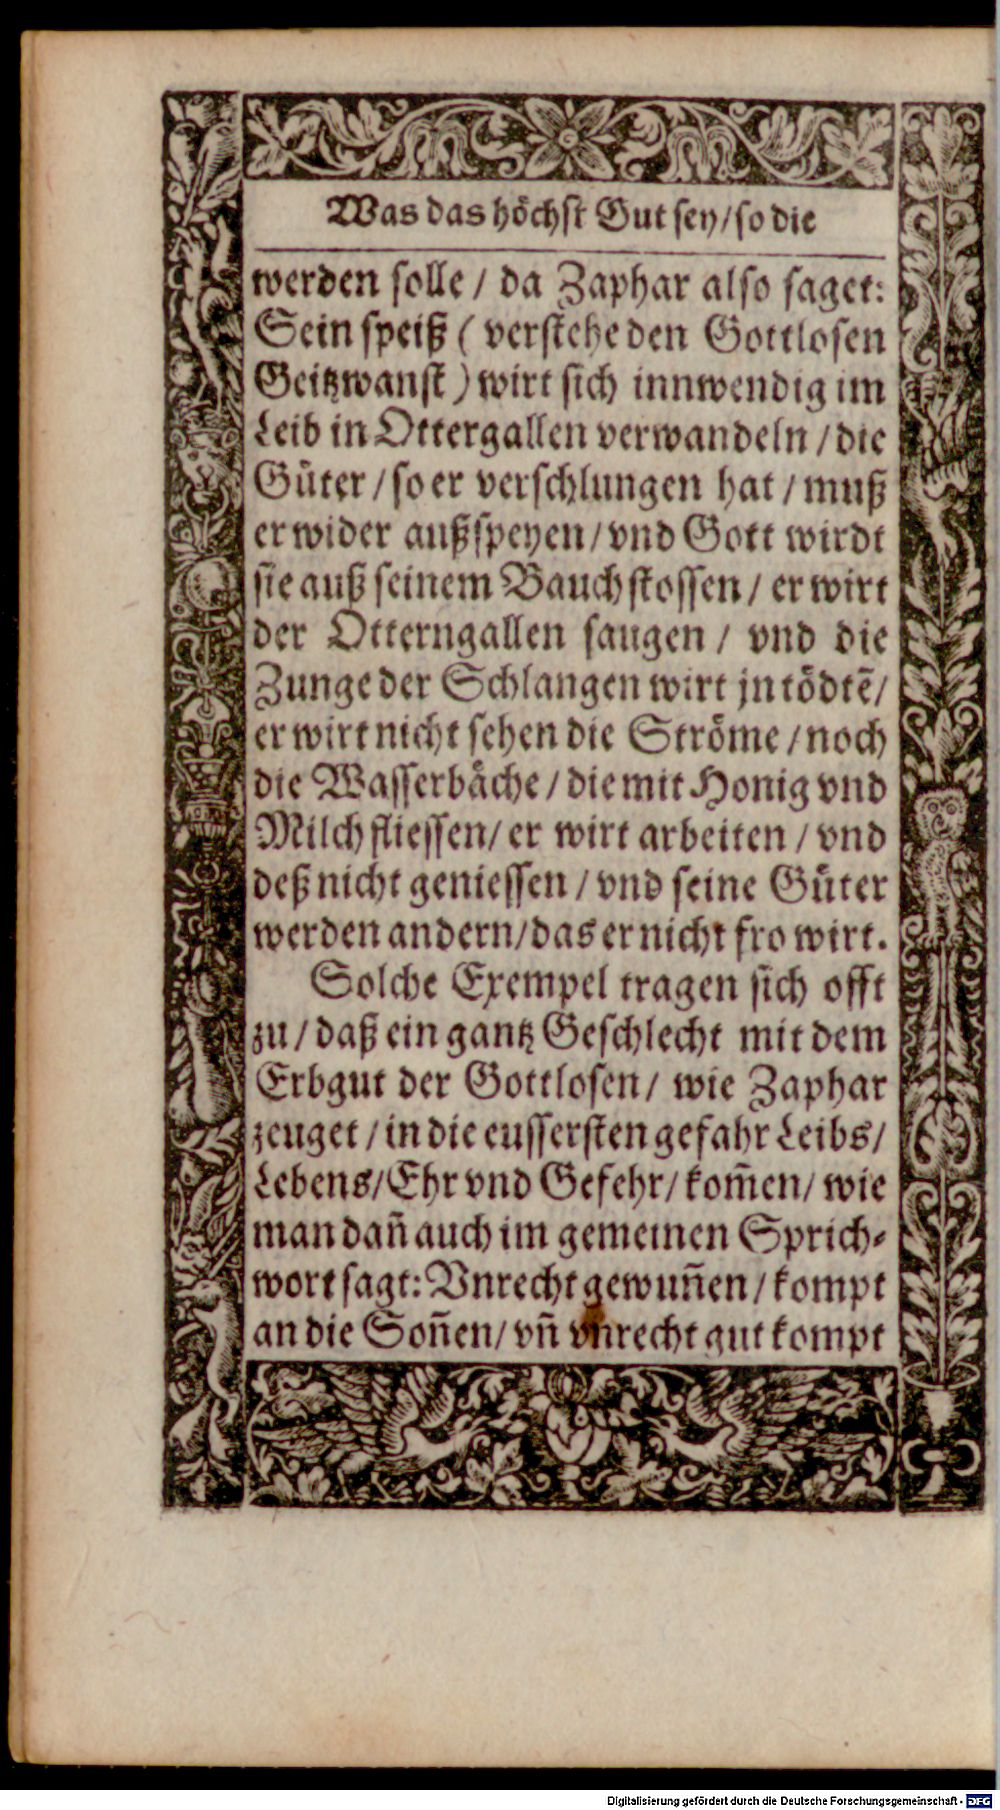 Was das höchst Gut sey/ so die
werden solle / da Zaphar also saget:
Sein speiß ( verstehe den Gottlosen
Geitzwanst ) wirt sich innwendig im
Leib in Ottergallen verwandeln / die
Güter / so er verschlungen hat / muß
er wider außspeyen / vnd Gott wirdt
sie auß seinem Bauch stossen / er wirt
der Otterngallen saugen / vnd die
Zunge der Schlangen wirt jn tödtẽ/
er wirt nicht sehen die Ströme / noch
die Wasserbäche / die mit Honig vnd
Milch fliessen/ er wirt arbeiten / vnd
deß nicht geniessen / vnd seine Güter
werden andern/ das er nicht fro wirt.
Solche Exempel tragen sich offt
zu / daß ein gantz Geschlecht mit dem
Erbgut der Gottlosen/ wie Zaphar
zeuget / in die eussersten gefahr Leibs/
Lebens/ Ehr vnd Gefehr/ kom̃en/ wie
man dañ auch im gemeinen Sprich⸗
wort sagt: Vnrecht gewuñen / kompt
an die Soñen/ vñ vnrecht gut kompt
Digitalisierung gefördert durch die Deutsche Forschungsgemeinschaft - DFG